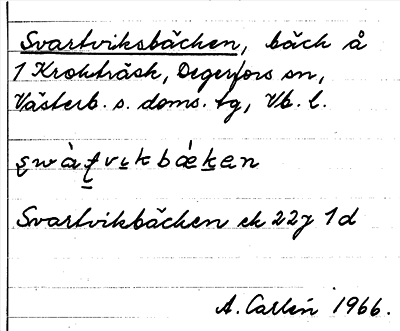 Svartviksbäcken, bäck å
1 Krokträsk, Degerfors sn,
Västerb. s. doms. tg, Vb. l.
Svartvikbäcken ek 22J 1d
A. Carlén 1966.